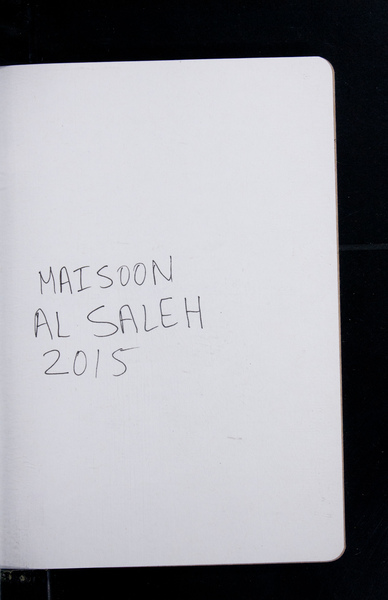 MAISOON
AL SALEH
2015